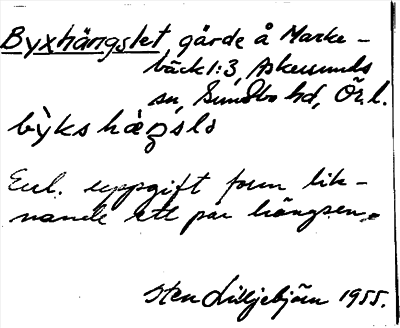 Byxhängslet, gärde å Marke-
bäck 1:3, Askersunds
sn, Sundbo hd, Ör. l.
bỳks hàŋslə
Enl. uppgift form lik-
nande ett par hängsen.
Sten Liljebjörn 1955.